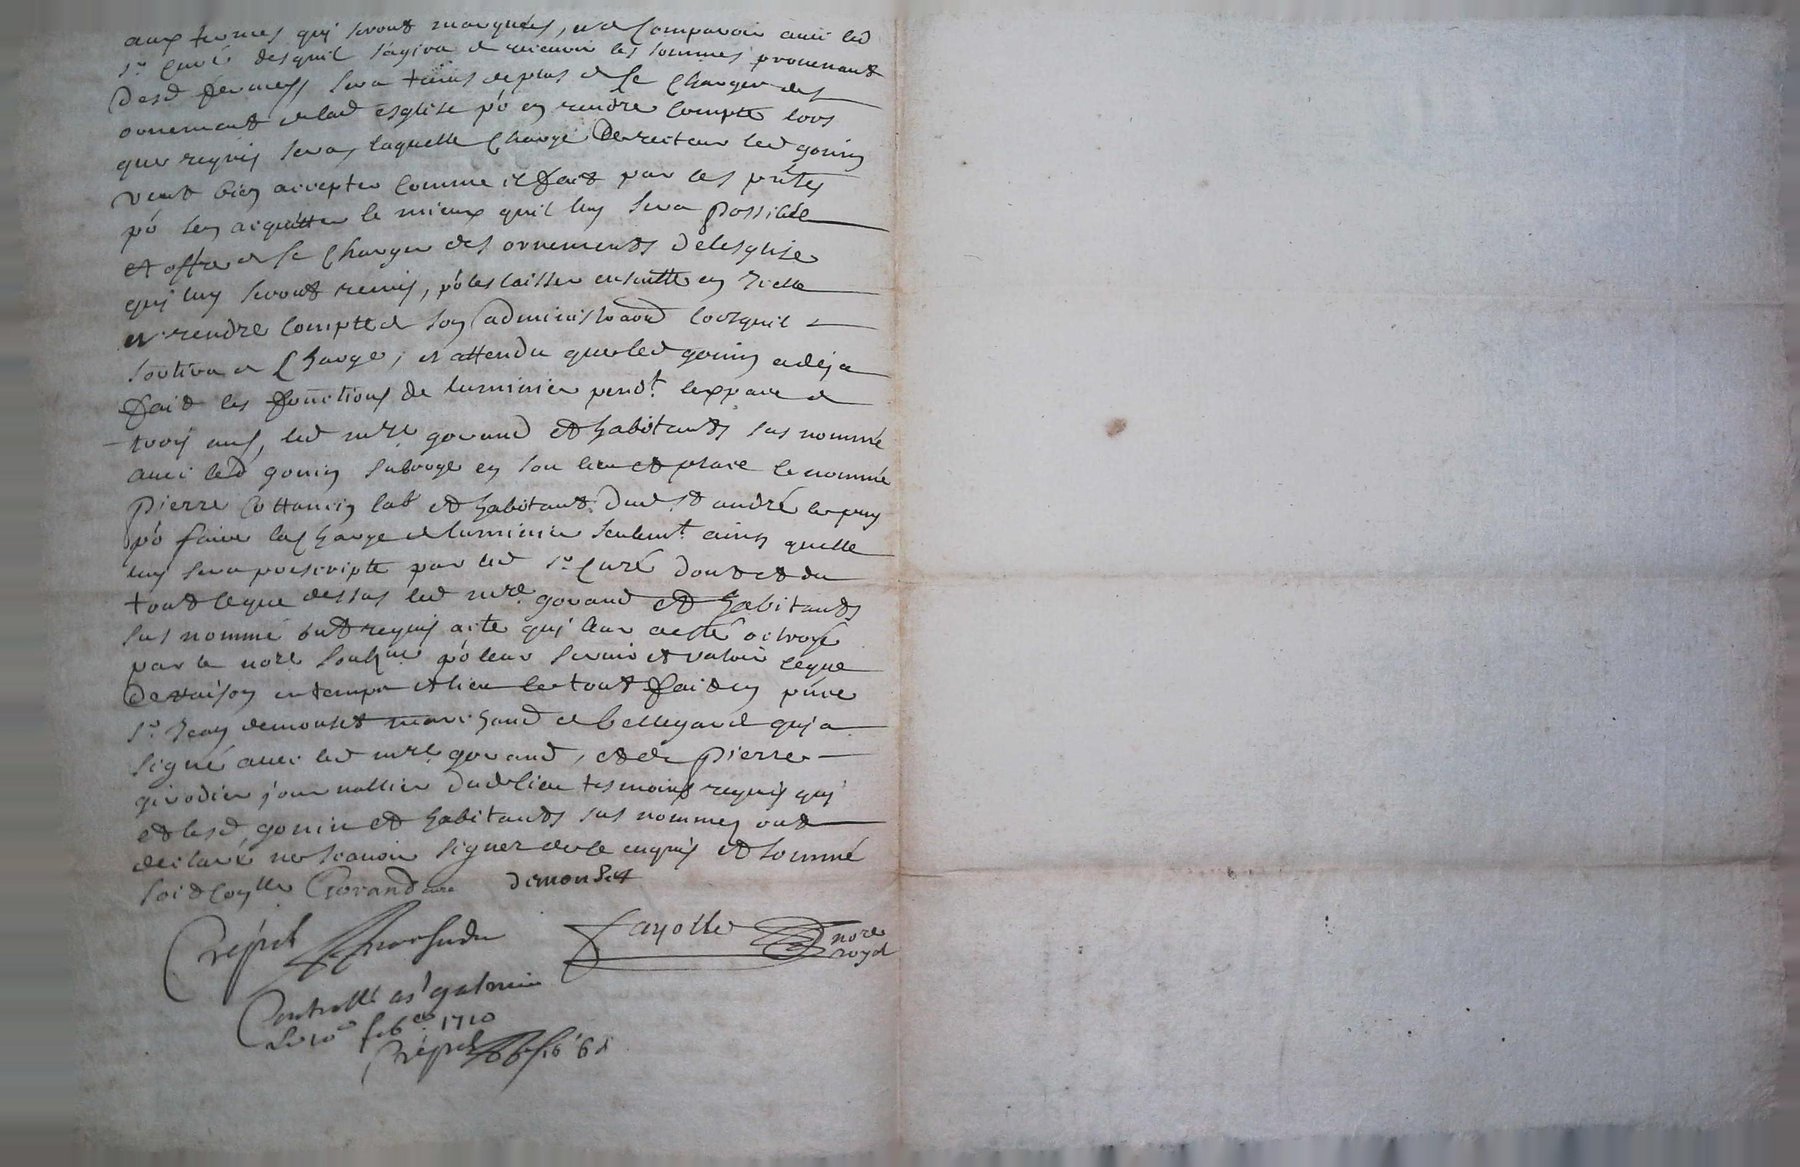 aux termes qui seront marqués, et de Comparoir avec led
Sr Curé desquil sagira de recevoir les sommes provenant
Desd fermes, sera tenu de plus de se Charger des
ornements de lad esglise po en rendre Compte lors
que requis sera, laquelle Charge De recteur led gonin
veut bien accepter Comme il fait par ces pntes
po sen acquitter le mieux quil luy sera possible
et offre de se Charger des ornements delesglise
qui luy seront remis, po les laisser ensuitte en Icelle
et rendre Compte de son administraond lorsquil
sortira de Charge, et attendu que led gonin a deja
fait les fonctions de luminier pendt lexpace de
trois ans, led mre govand et habitants sus nommé
avec led gonin subroge en son lieu et place le nommé
Pierre Cottancin lab et habitant Dud St andré le puy
po faire la Charge de luminier seulemt ainsy quelle
luy sera prescripte par led Sr Curé Dont et du
tout ceque dessus led mre govand et habitants
sus nommé ont requis acte qui leur a esté octroyé
par le nore soubzné po leur servir et valoir ceque
De raison en temps et lieu le tout fait en pnce
Sr Jean demonset marchand de bellegarde qui a
signé avec led mre govand, et de Pierre
girodier journallier Dud lieu tesmoins requis qui
et lesd gonin et habitants sus nommez ont
declaré ne scavoir signer de ce enquis et sommé
soit Coniller Govand cure Demonset
Fayolle nore
royal
Controllé a St galmier
Le 10e feber 1710